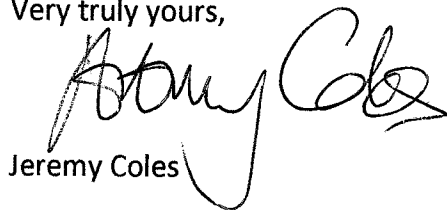 Very truly yours,
Coles
Jeremy Coles